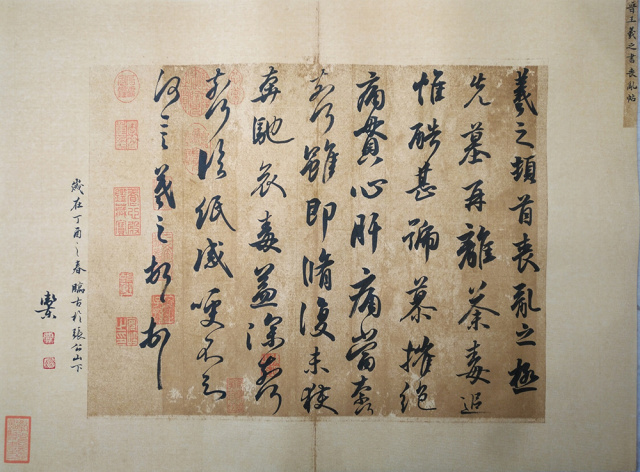 晉王羲之書喪亂帖
羲之頓首喪亂之極
先墓再離荼毒追
惟酷甚號慕摧絕
痛貫心肝痛當奈何
奈何雖即脩復未獲
奔馳哀毒益深奈何
奈何臨紙感哽不知
何言羲之頓首頓首
歲在丁酉之春臨古於張公山下